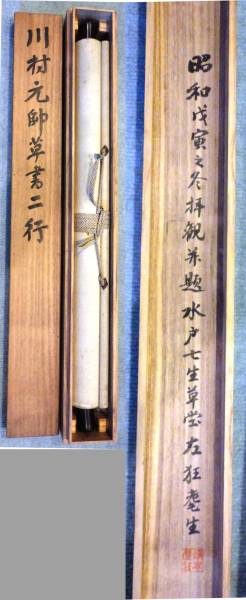 川村元帥草書二行
昭和戊寅之冬拝観并題水戸七生草堂左狂老生